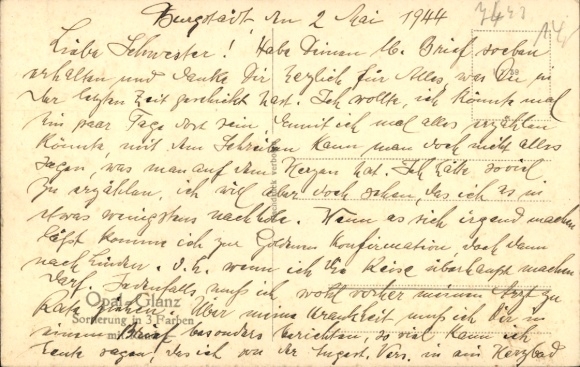 Burgstädt, den 2 Mai 1944
Liebe Schwester! Habe Deinen lb. Brief soeben
erhalten und danke Dir herzlich für Alles, was Du in
der letzten Zeit geschickt hast. Ich wollte, ich könnte mal
ein paar Tage dort sein damit ich mal alles erzählen
könnte, mit dem Schreiben kann man doch nicht alles
sagen, was man auf dem Herzen hat. Ich habe soviel
zu erzählen, ich will aber doch sehen, das ich es in
etwas wenigstens nachhole. Wenn es sich irgend machen
läßt komme ich zur Goldenen Konfirmation doch dann
nach Linden. d.h. wenn ich die Reise überhaupt machen
darf. Jedenfalls muß ich wohl vorher meinen Arzt zu
Rate ziehen. Über meine Krankheit muß ich Dir in
einem Brief besonders berichten, so viel kann ich
heute sagen, das ich von der Angest. Vers. in ein Herzbad
Opal-Glanz
Sortierung in 3 Farben